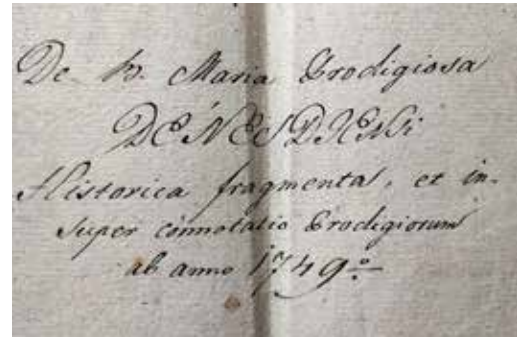 De B. Maria Prodigiosa
DÉNESDIENSi
Historica fragmenta, et in-
super connotatio Prodigiorum
ab anno 1749º